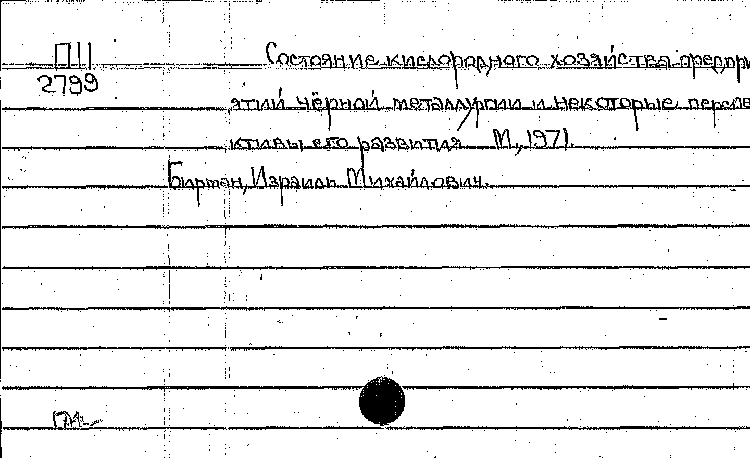 П11
2799
Состояние кислородного хозяйства предпри
ятий чёрной металлургии и некоторые перспе
ктивы его развития М., 1971.
Бирман, Израиль Михайлович.